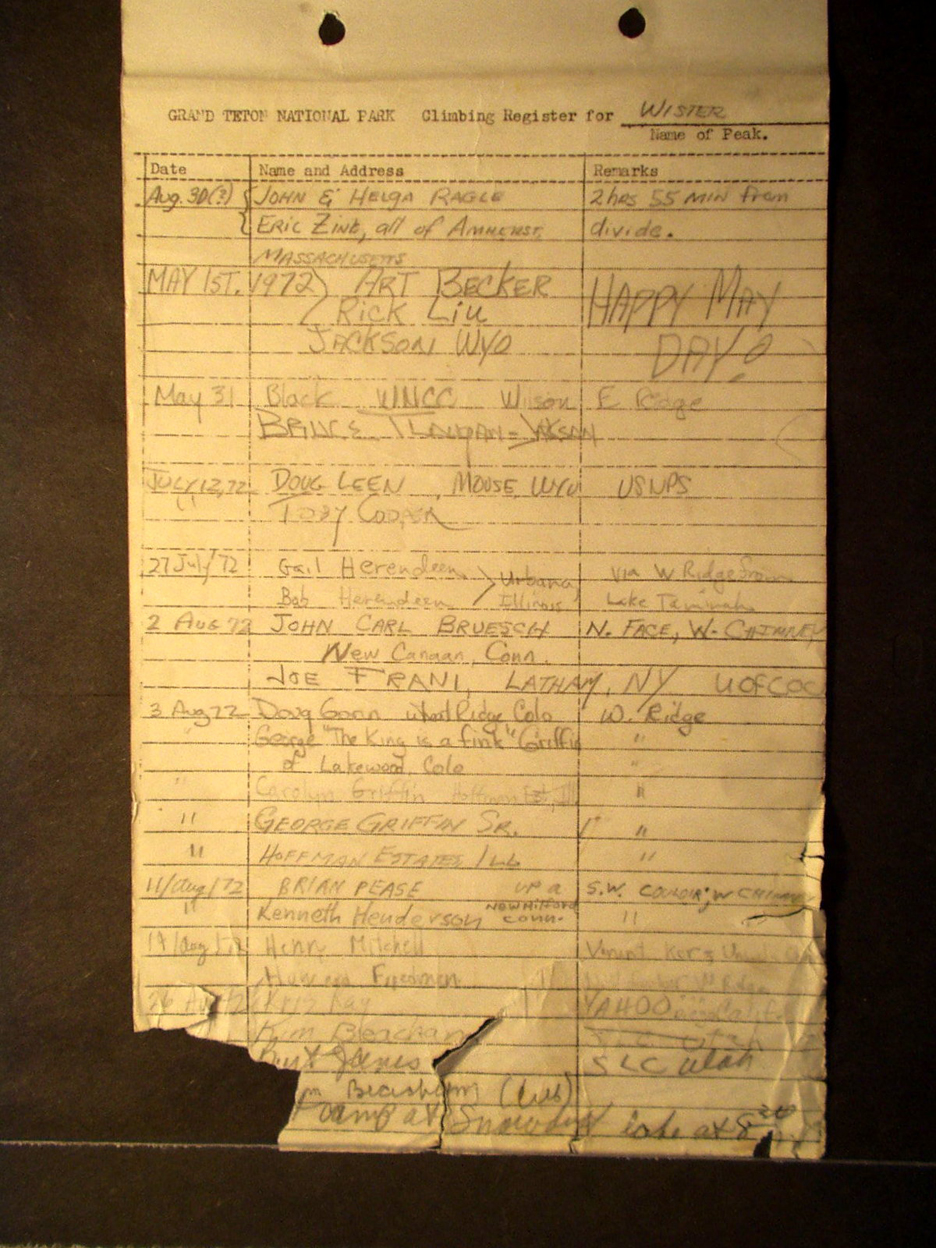 GRAND TETON NATIONAL PARK Climbing Register for WISTER
Name of Peak.
Date Name and Address Remarks
Aug. 30(?) { JOHN & HELGA RAGLE 2 hrs 55 MIN from
{ ERIC ZINK, all of AMHERST, divide.
MASSACHUSETTS
MAY 1ST, 1972 ART BECKER HAPPY MAY
RICK LIU
JACKSON WYO DAY!
May 31 Black Wilson E Ridge
BRUCE
JULY 12, 72 DOUG LEEN, MOOSE WYO USNPS
" TOBY COOPER
27 July 72 Gail Herendeen > Urbana, via W Ridge from
Bob Herendeen Illinois Lake Taminah
2 AUG 72 JOHN CARL BRUESCH N. FACE, W. CHIMNEY
New Canaan, Conn.
JOE FRANI, LATHAM, NY
3 Aug 72 Doug Gorin Wheat Ridge Colo W. Ridge
" George "The King is a fink" Griffin "
of Lakewood, Colo "
" Carolyn Griffin Hoffman Est, Ill "
" GEORGE GRIFFIN SR. "
" HOFFMAN ESTATES ILL "
11/Aug/72 BRIAN PEASE UP a S.W. COULOIR; W CHIMNEY
" Kenneth Henderson NEW MILFORD CONN. "
19/Aug Henry Mitchell
Freedmen W Ridge
26 Aug 72 Kay YAHOO Calif.
Kim Beacham
Burt Janis SLC Utah
Camp at Snowdrift lake at 8